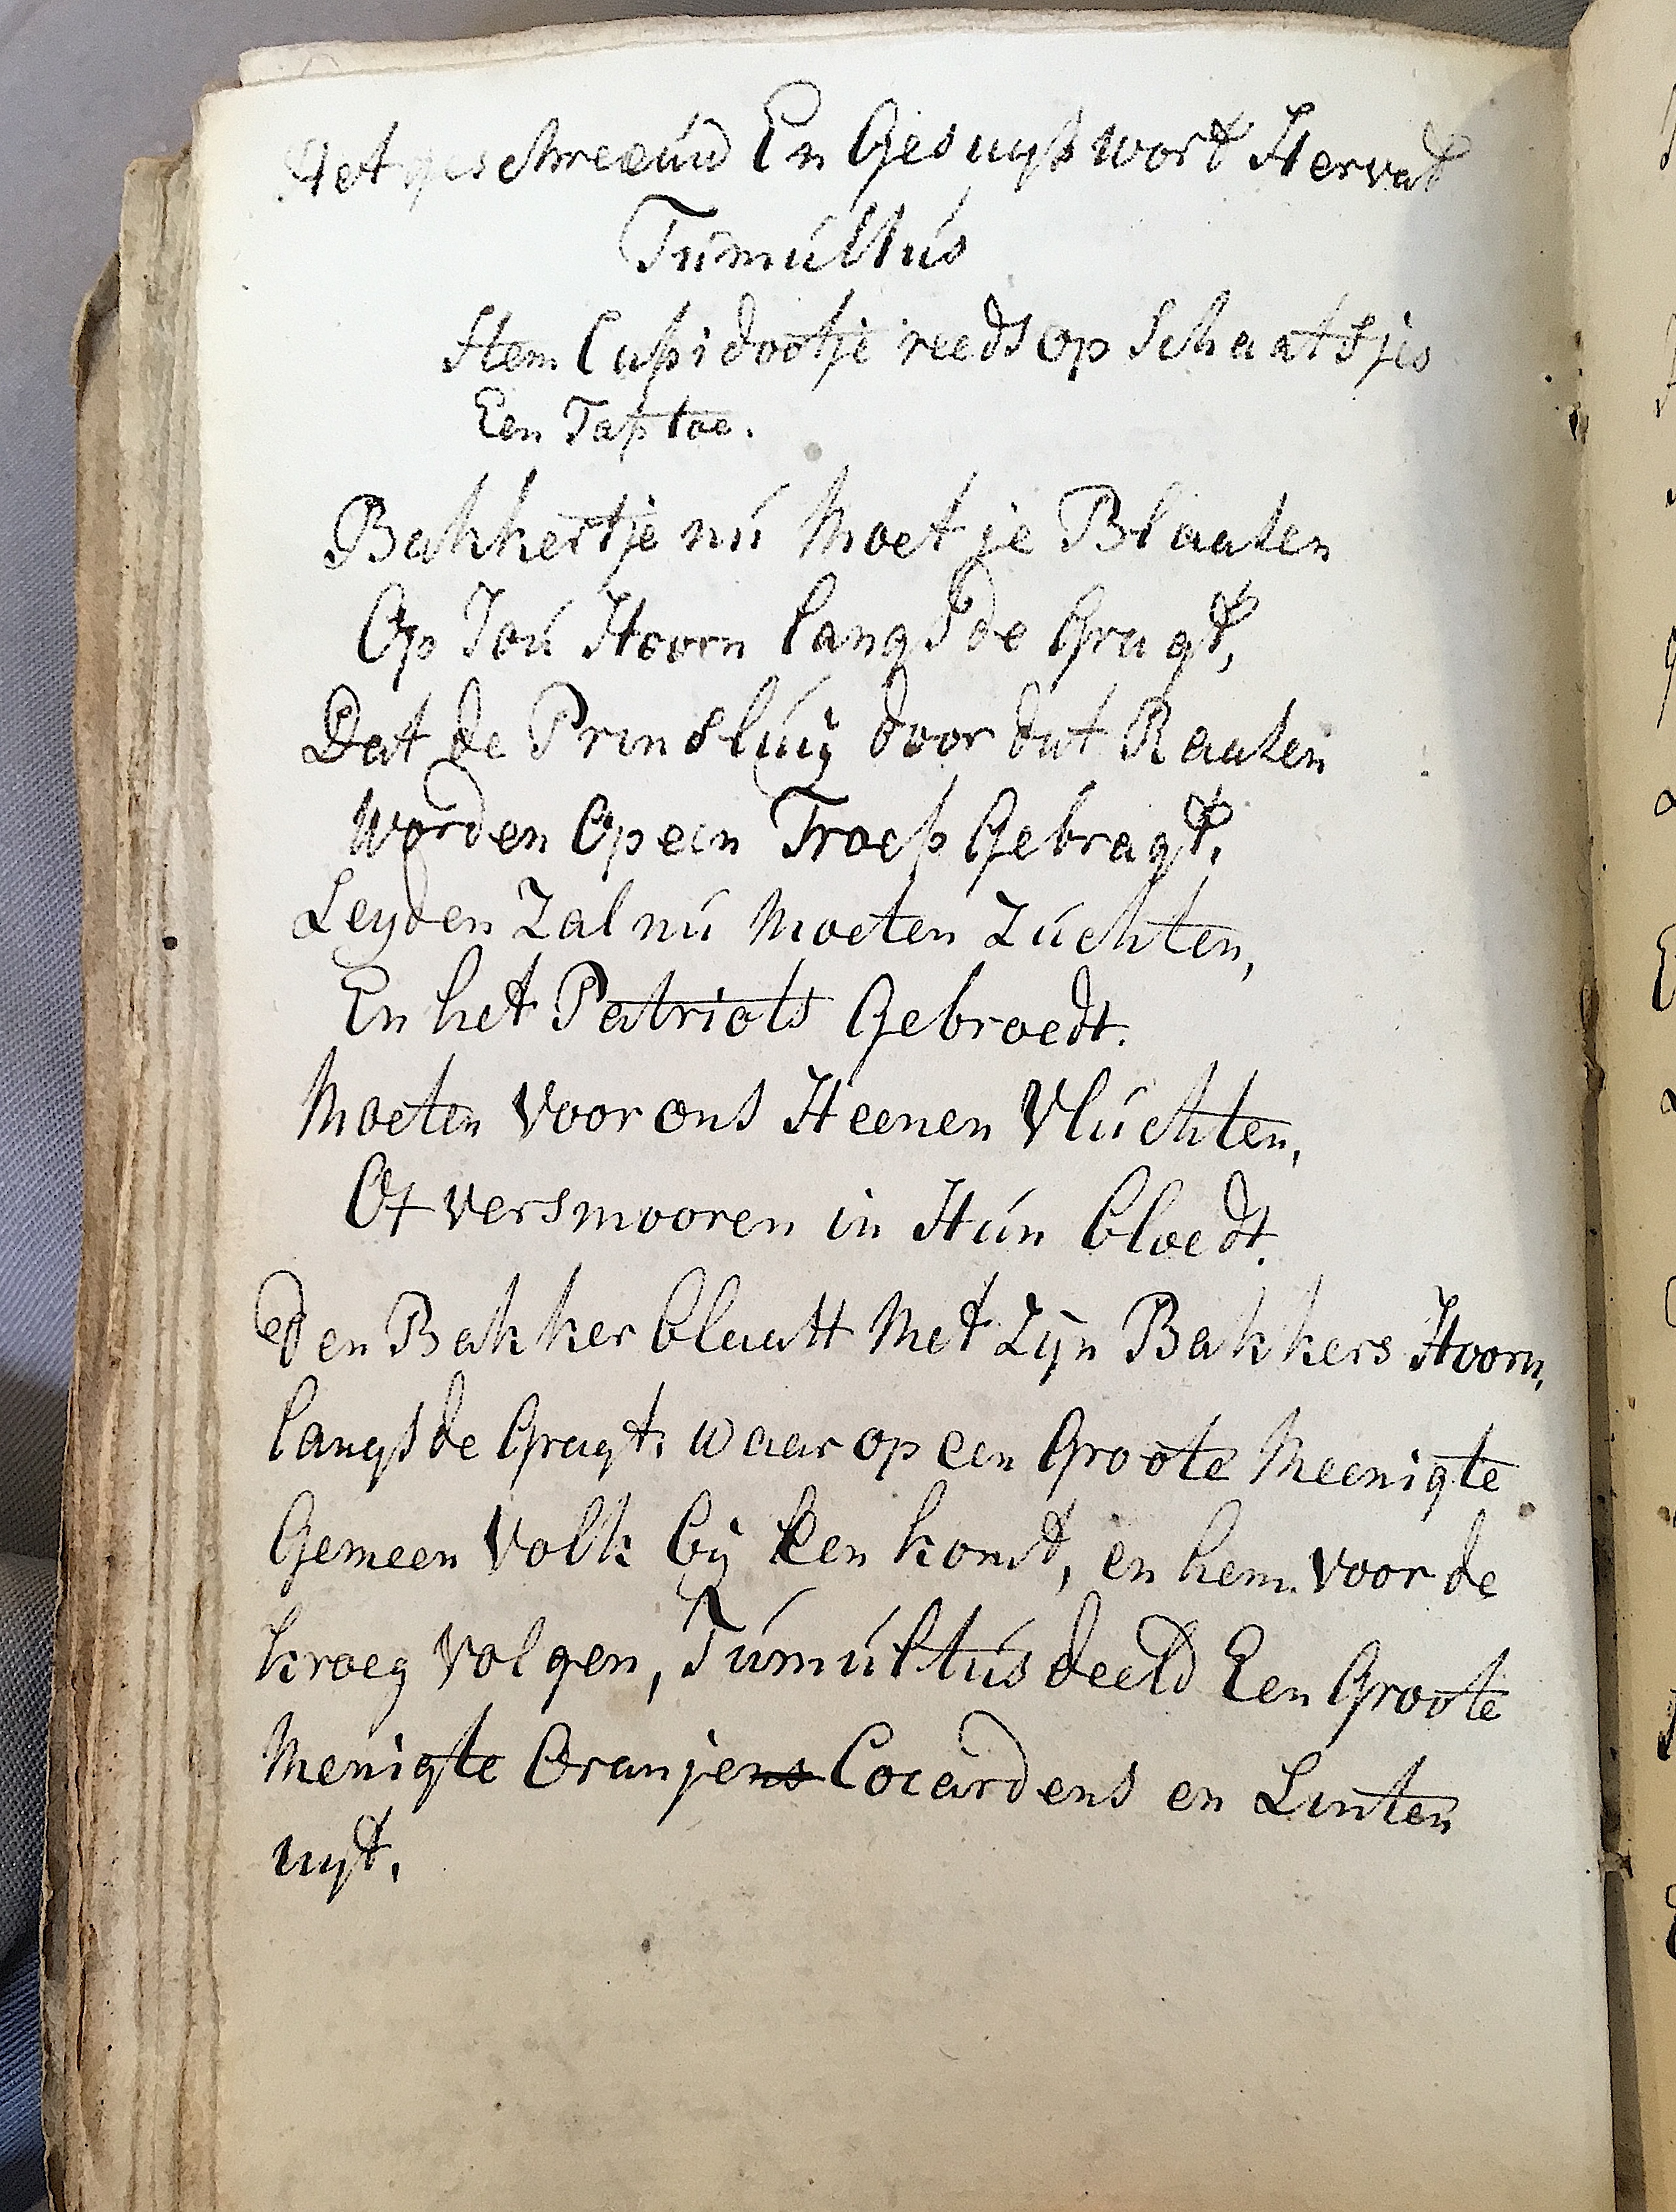 Het geschreeuw En Gesuys wort Hervat
Tumultus
Stem Cupidootje reeds op Schaatsjes
Een Taptoe.
Bakkertje nu Moet je Blaaten
Op Jou Hoorn langs de Gragt,
Dat de Prinsluij door dat Raaten
Worden Op een Troep Gebragt,
Leyden Zal nu Moeten Zuchten,
En het Patriots Gebroedt.
Moeten Voor ons Heenen Vluchten,
Of versmooren in Hun bloedt.
Den Bakker blaatt Met Zyn Bakkers Hoorn,
langs de Gragt, waar op een Groote Meenigte
Gemeen Volk bij Een komt, en hem voor de
kroeg Volgen, Tumultus deeld Een Groote
Menigte Oranjens Cocardens en Linten
uyt,